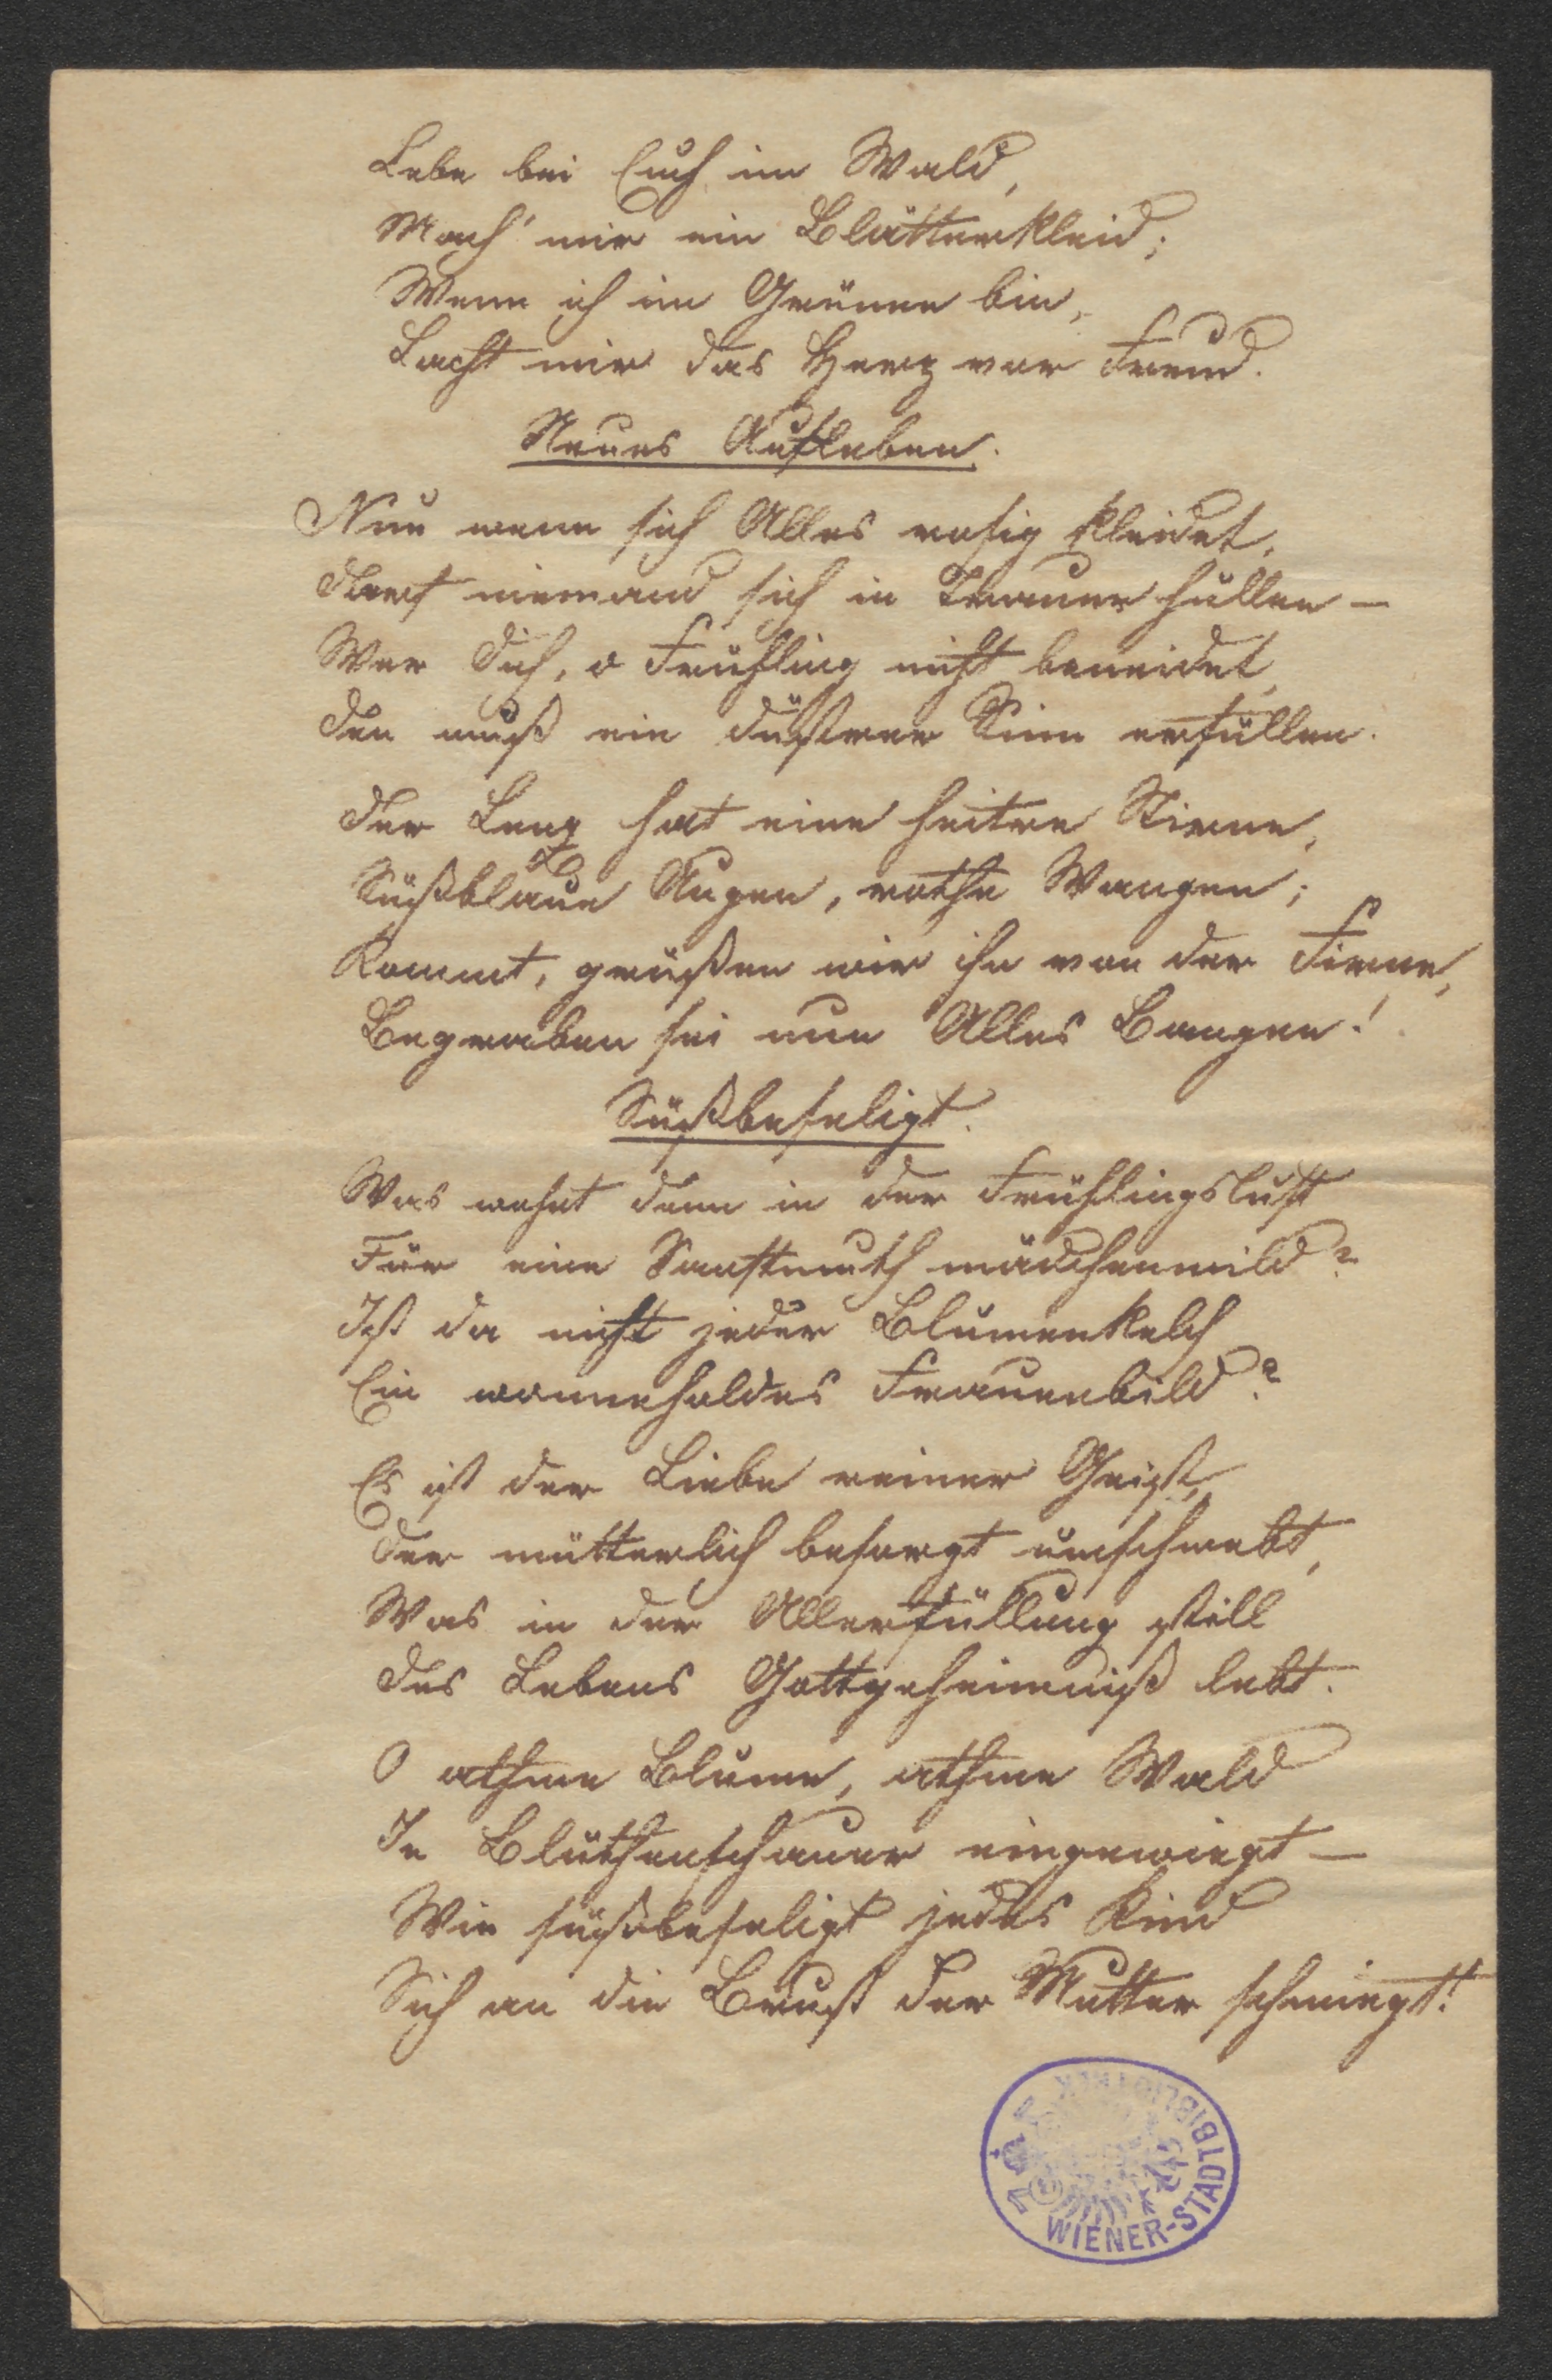 Lebe bei Euch im Wald,
Mach' mir ein Blätterkleid;
Wenn ich im Grünen bin,
Lacht mir das Herz vor Freud.
Neues Aufleben.
Nun wenn sich Alles rosig kleidet,
Darf niemand sich in Trauer hüllen –
Wer dich, o Frühling nicht beneidet,
Den muß ein düstrer Sinn erfüllen.
Der Lenz hat eine heitre Stirne,
Süßblaue Augen, rothe Wangen;
Kommt, grüßen wir ihn von der Firne,
Begraben sei nun Alles Bangen!
Süßbeseligt.
Was wehet denn in der Frühlingsluft
Für eine Sanftmuth mädchenmild?
Ist da nicht jeder Blumenkelch
Ein wonneholdes Frauenbild?
Es ist der Liebe reiner Geist,
Der mütterlich besorgt umschwebt,
Was in der Allerfüllung still
Des Lebens Gottgeheimniß lebt.
O athme Blume, athme Wald
In Blüthenschauer eingewiegt –
Wie süßbeseligt jedes Kind
Sich an die Brust der Mutter schmiegt!
WIENER-STADTBIBLIOTHEK